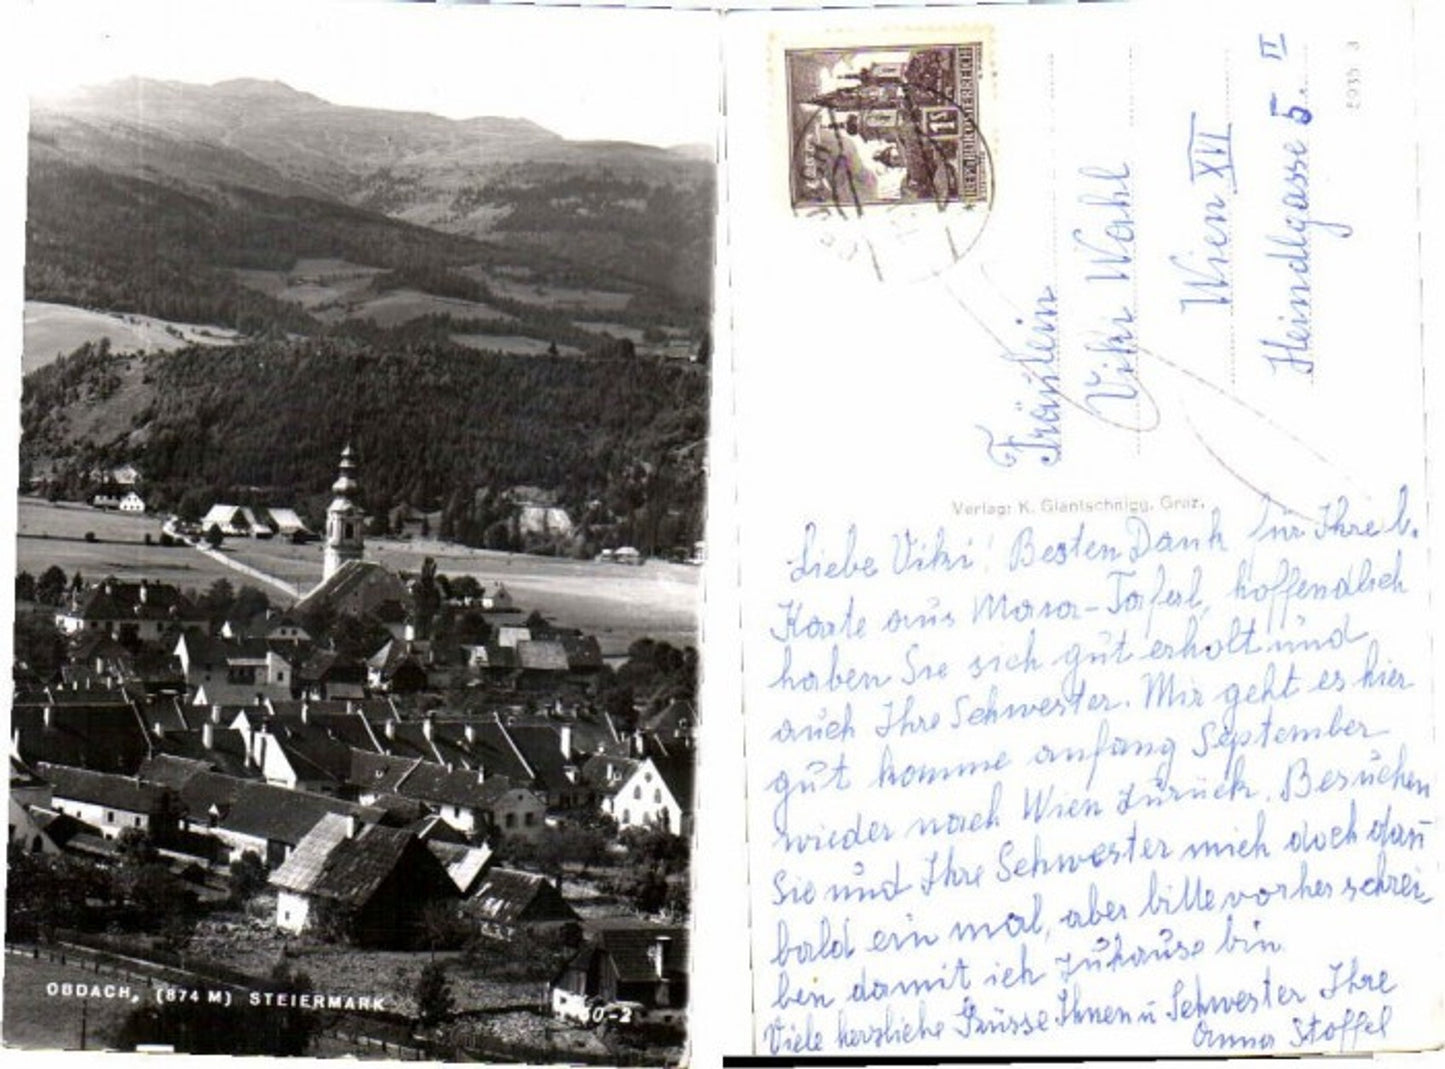 OBDACH, (874 M) STEIERMARK
REPUBLIK ÖSTERREICH
1S
Fräulein
Viki Wahl
Wien XVI
Heindlgasse 5. II
Verlag: K. Glantschnigg, Graz.
Liebe Viki! Besten Dank für Ihre l.
Karte aus Maria-Taferl, hoffendlich
haben Sie sich gut erholt und
auch Ihre Schwester. Mir geht es hier
gut komme anfang September
wieder nach Wien zurück. Besuchen
Sie und Ihre Schwester mich doch dan
bald ein mal, aber bitte vorher schrei-
ben damit ich zuhause bin
Viele herzliche Grüsse Ihnen u Schwester Ihre
Anna Stoffel